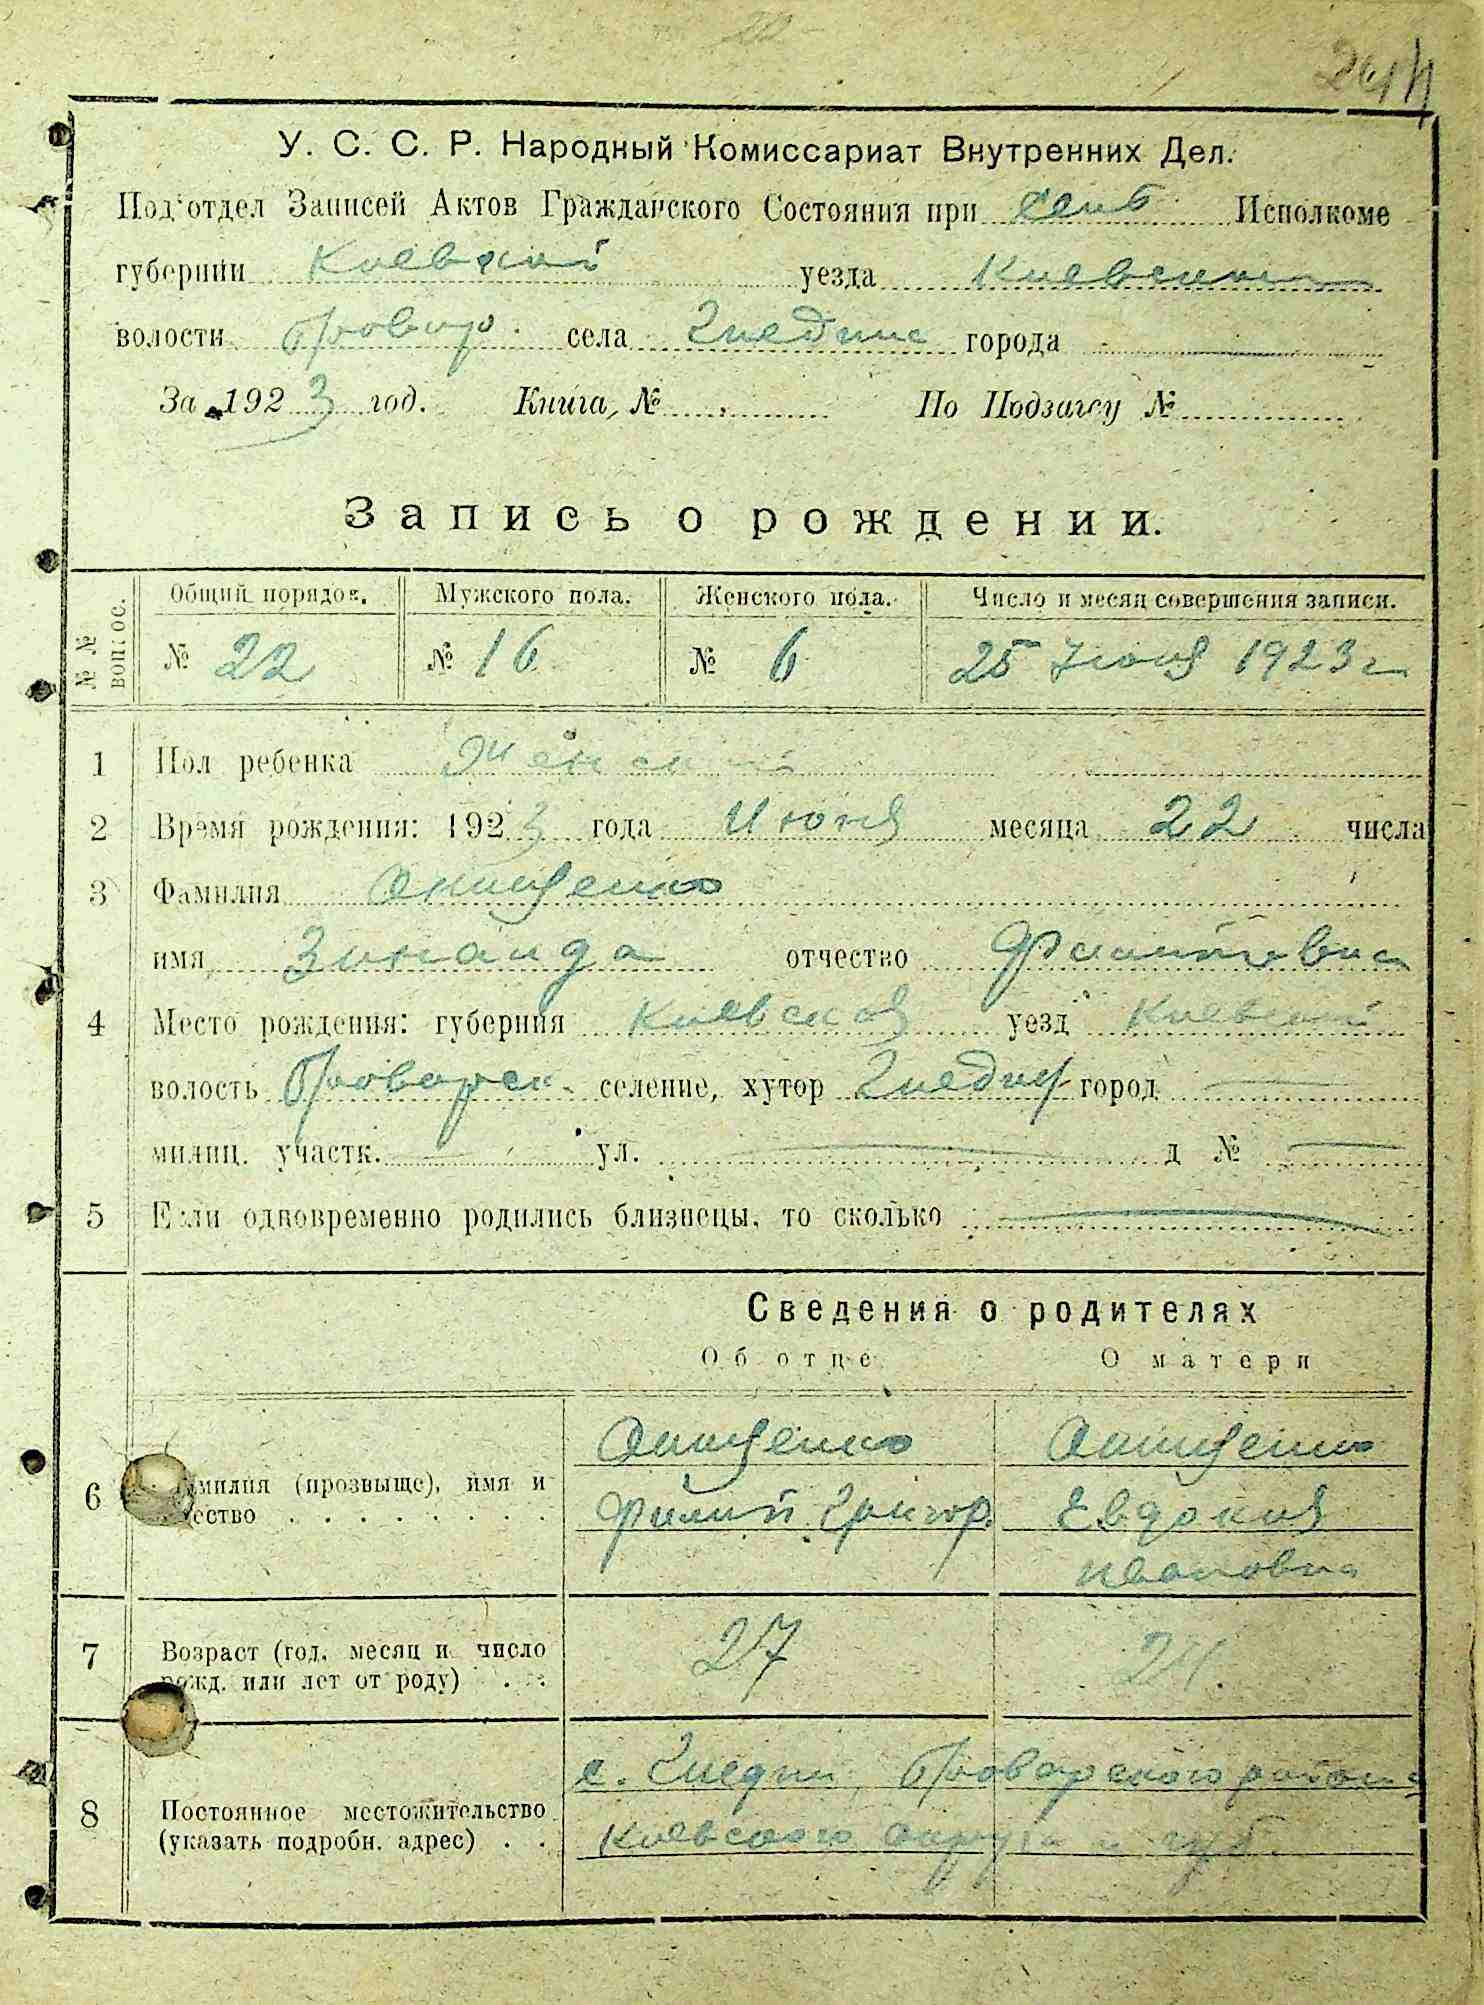 У. С. С. Р. Народный Комиссариат Внутренних Дел.
Под'отдел Записей Актов Гражданского Состояния при Исполкоме
губернии Киевской уезда Киевского
волости Бровар. села Гнедин города
За 1923 год. Книга, № По Подзагсу №
Запись о рождении.
№№ вопрос. Общий порядок. Мужского пола. Женского пола. Число и месяц совершения записи.
№ 22 № 16 № 6 25 Июня 1923 г
1 Пол ребенка Женский
2 Время рождения: 1923 года Июня месяца 22 числа
3 Фамилия Онищенко
имя, Зинаида отчество Филиповна
4 Место рождения: губерния Киевская уезд Киевский
волость Броварск. селение, хутор Гнедин город
милиц. участк. ул. д №
5 Если одновременно родились близнецы, то сколько
Сведения о родителях
Об отце О матери
Онищенко Онищенко
6 Фамилия (прозвыще), имя и Филип Григор. Евдокия
отчество Ивановна
7 Возраст (год, месяц и число 27
рожд. или лет от роду)
с. Гнедин, Броварского района
8 Постоянное местожительство
(указать подробн. адрес) Киевского округа и губ.